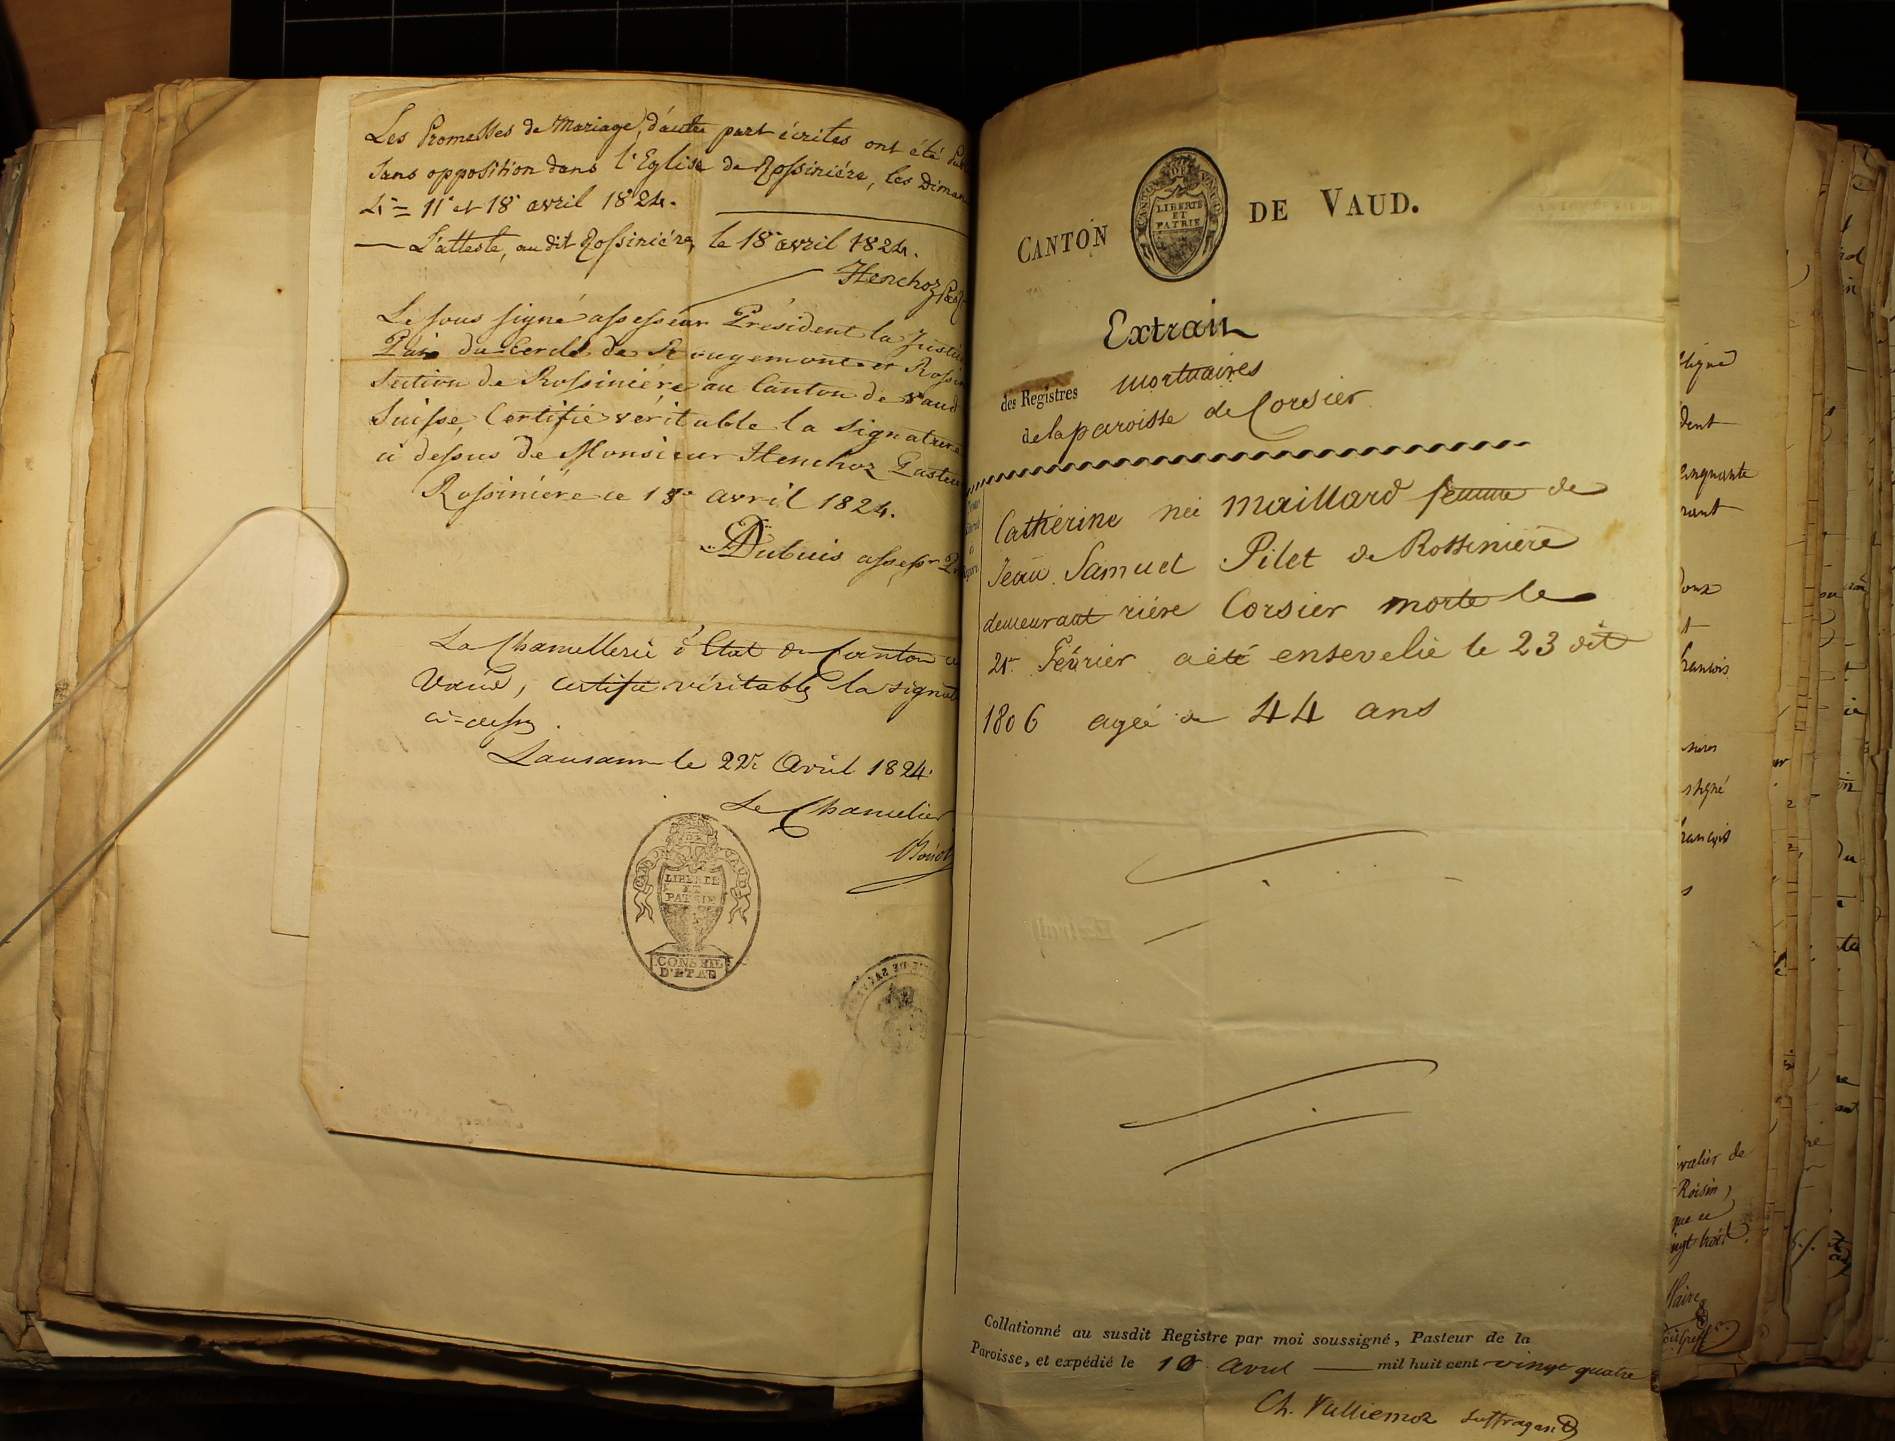 Les Promesses de Mariage, d'autre part écrites ont été
sans opposition dans l'Eglise de Rossinière, les
4e = 11e et 18e avril 1824.
L'atteste, au dit Rossinière, le 18e avril 1824.
Henchoz
Le sous signé assesseur Président la
Paix du Cercle de Rougemont et
Section de Rossiniére au Canton de Vaud
Suisse, Certifie véritable la signature
ci dessus de Monsieur Henchoz
Rossiniére ce 18e avril 1824.
Dubuis assessr
La Chancellerie d'Etat du Canton de
Vaud, certifie véritable la
ci-dessus.
Lausanne le 22e Avril 1824.
Le Chancelier
CANTON DE VAUD
LIBERTÉ
ET
PATRIE
CONSEIL
D'ETAT
CANTON DE VAUD.
CANTON DE VAUD
LIBERTÉ
ET
PATRIE
Extrait
des Registres mortuaires
de la paroisse de Corsier
Cathérine neé Maillard femme de
Jean Samuel Pilet de Rossinière
demeurant riére Corsier morte le
21e Février a été ensevelie le 23 dit
1806 ageé de 44 ans
Collationné au susdit Registre par moi soussigné, Pasteur de la
Paroisse, et expédié le 10 avril mil huit cent vingt quatre
Ch. Vulliemoz suffragant
signé
dent
cinquante
francois
signé
francois
chevalier de
que ce
vingt trois
Maire